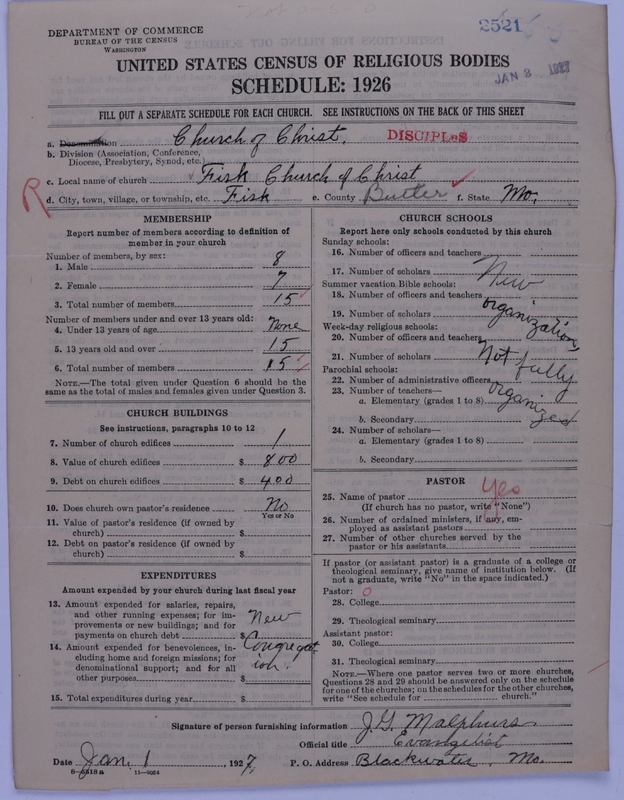 DEPARTMENT OF COMMERCE
BUREAU OF THE CENSUS
WASHINGTON
2521
JAN 3 1927
UNITED STATES CENSUS OF RELIGIOUS BODIES
SCHEDULE: 1926
FILL OUT A SEPARATE SCHEDULE FOR EACH CHURCH. SEE INSTRUCTIONS ON THE BACK OF THIS SHEET
a. Denomination Church of Christ. DISCIPLES
b. Division (Association, Conference,
Diocese, Presbytery, Synod, etc.)
c. Local name of church Fisk Church of Christ
R
d. City, town, village, or township, etc. Fisk e. County Butler f. State Mo.
MEMBERSHIP
Report number of members according to definition of
member in your church
Number of members, by sex:
1. Male 8
2. Female 7
3. Total number of members 15
Number of members under and over 13 years old:
4. Under 13 years of age None
5. 13 years old and over 15
6. Total number of members 15
NOTE.—The total given under Question 6 should be the
same as the total of males and females given under Question 3.
CHURCH BUILDINGS
See instructions, paragraphs 10 to 12
7. Number of church edifices 1
8. Value of church edifices $ 800
9. Debt on church edifices $ 400
10. Does church own pastor's residence No
Yes or No
11. Value of pastor's residence (if owned by
church) $
12. Debt on pastor's residence (if owned by
church) $
EXPENDITURES
Amount expended by your church during last fiscal year
13. Amount expended for salaries, repairs,
and other running expenses; for im-
provements or new buildings; and for
payments on church debt $ New
14. Amount expended for benevolences, in-
cluding home and foreign missions; for
denominational support; and for all
other purposes $ Congregat
ion.
15. Total expenditures during year $
CHURCH SCHOOLS
Report here only schools conducted by this church
Sunday schools:
16. Number of officers and teachers
17. Number of scholars New
Summer vacation Bible schools:
18. Number of officers and teachers
19. Number of scholars organization,
Week-day religious schools:
20. Number of officers and teachers
21. Number of scholars Not fully
Parochial schools:
22. Number of administrative officers
23. Number of teachers— organized
a. Elementary (grades 1 to 8)
b. Secondary
24. Number of scholars—
a. Elementary (grades 1 to 8)
b. Secondary
PASTOR
25. Name of pastor Yes
(If church has no pastor, write "None")
26. Number of ordained ministers, if any, em-
ployed as assistant pastors
27. Number of other churches served by the
pastor or his assistants
If pastor (or assistant pastor) is a graduate of a college or
theological seminary, give name of institution below. (If
not a graduate, write "No" in the space indicated.)
Pastor: 0
28. College
29. Theological seminary
Assistant pastor:
30. College
31. Theological seminary
NOTE.—Where one pastor serves two or more churches,
Questions 28 and 29 should be answered only on the schedule
for one of the churches; on the schedules for the other churches,
write "See schedule for church."
Signature of person furnishing information J.G. Malphurs
Official title Evangelist
Date Jan. 1, 1927. P. O. Address Blackwater, Mo.
8—5518a 11—9024